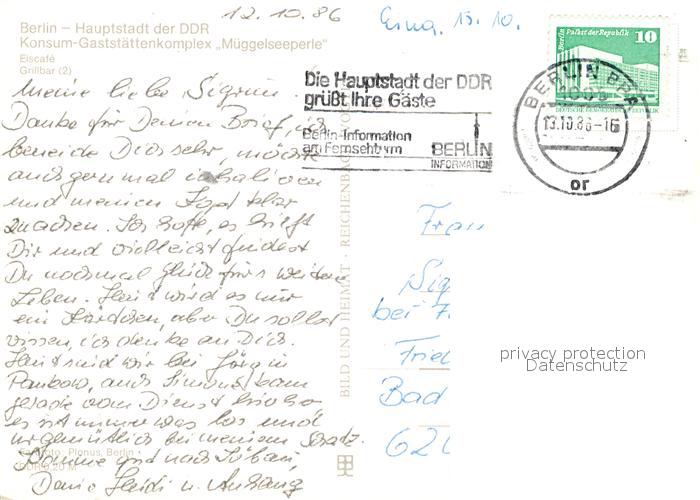 12.10.86
Berlin – Hauptstadt der DDR
Konsum-Gaststättenkomplex „Müggelseeperle"
Eiscafé
Grillbar (2)
Meine liebe Sigrun
Danke für Deinen Brief, ich
beneide Dich sehr, möchte
auch gern mal
und meinen Kopf klar
machen. Ich hoffe, es hilft
Dir und vielleicht findest
Du nochmal Glück für's weitere
Leben. Heut wird es nur
ein Kärtchen, aber Du sollst
wissen, ich denke an Dich.
Heut sind wir bei Jörg in
Pankow, auch Simone kam
gerade vom Dienst
es ist immer was los und
urgemütlich bei meinem Schatz.
Komme gut nach
Deine Heidi u. Anhang
Foto: Plonus, Berlin
BILD UND HEIMAT · REICHENBACH
15. 10.
Die Hauptstadt der DDR
grüßt Ihre Gäste
Berlin-Information
am Fernsehturm
BERLIN
INFORMATION
Berlin, Palast der Republik
10
DEUTSCHE DEMOKRATISCHE REPUBLIK
BERLIN BPA
13.10.86-16
or
Frau
Sig
bei F.
Fried
Bad
62
privacy protection
Datenschutz